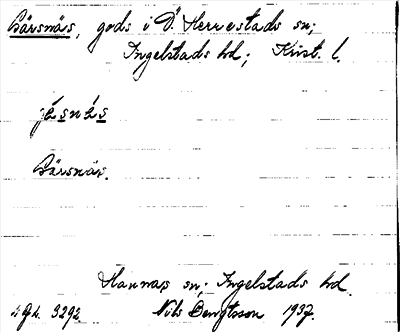 Bärsnäs, gods i Ö. Herrestads sn;
Ingelstads hd; Krist. l.
Bärsnäs.
Hannas sn; Ingelstads hd.
3292 Nils Bengtsson 1937.